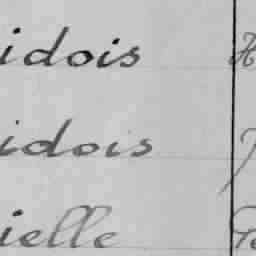 idois
idois
ielle